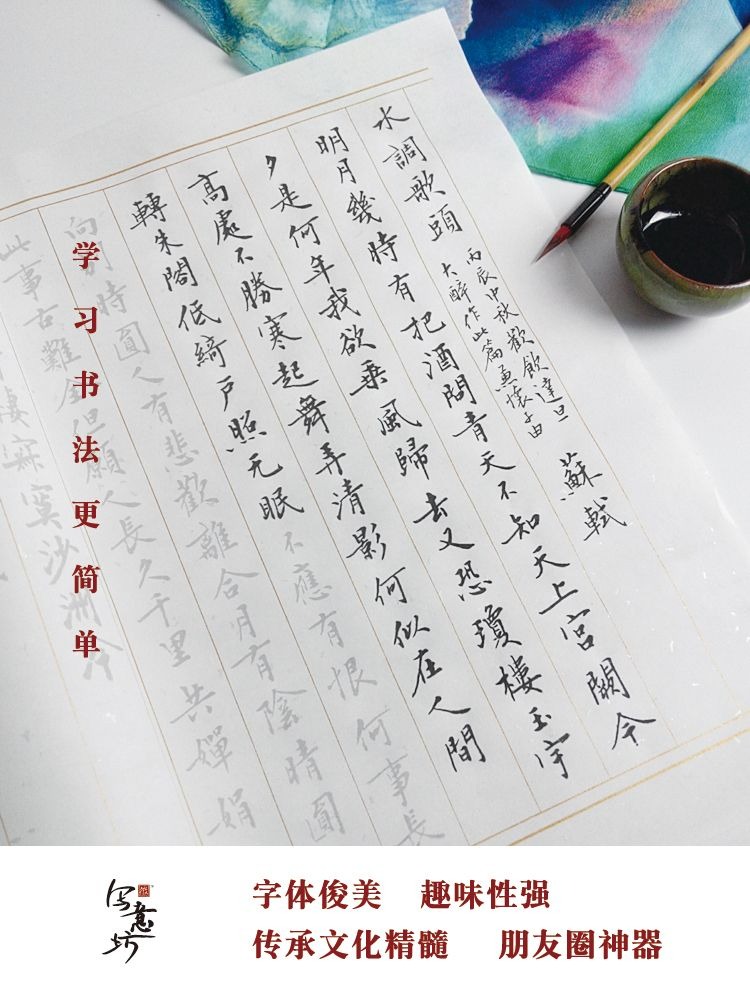 水調歌頭
丙辰中秋歡飲達旦
大醉作此篇兼懷子由
蘇軾
明月幾時有把酒問青天不知天上宮闕今
夕是何年我欲乘風歸去又恐瓊樓玉宇
高處不勝寒起舞弄清影何似在人間
轉朱閣低綺戶照无眠不應有恨何事長
向別時圓人有悲歡離合月有陰晴圓
此事古難全但願人長久千里共嬋娟
棲寂寞沙洲冷
学习书法更简单
写意坊
字体俊美 趣味性强
传承文化精髓 朋友圈神器